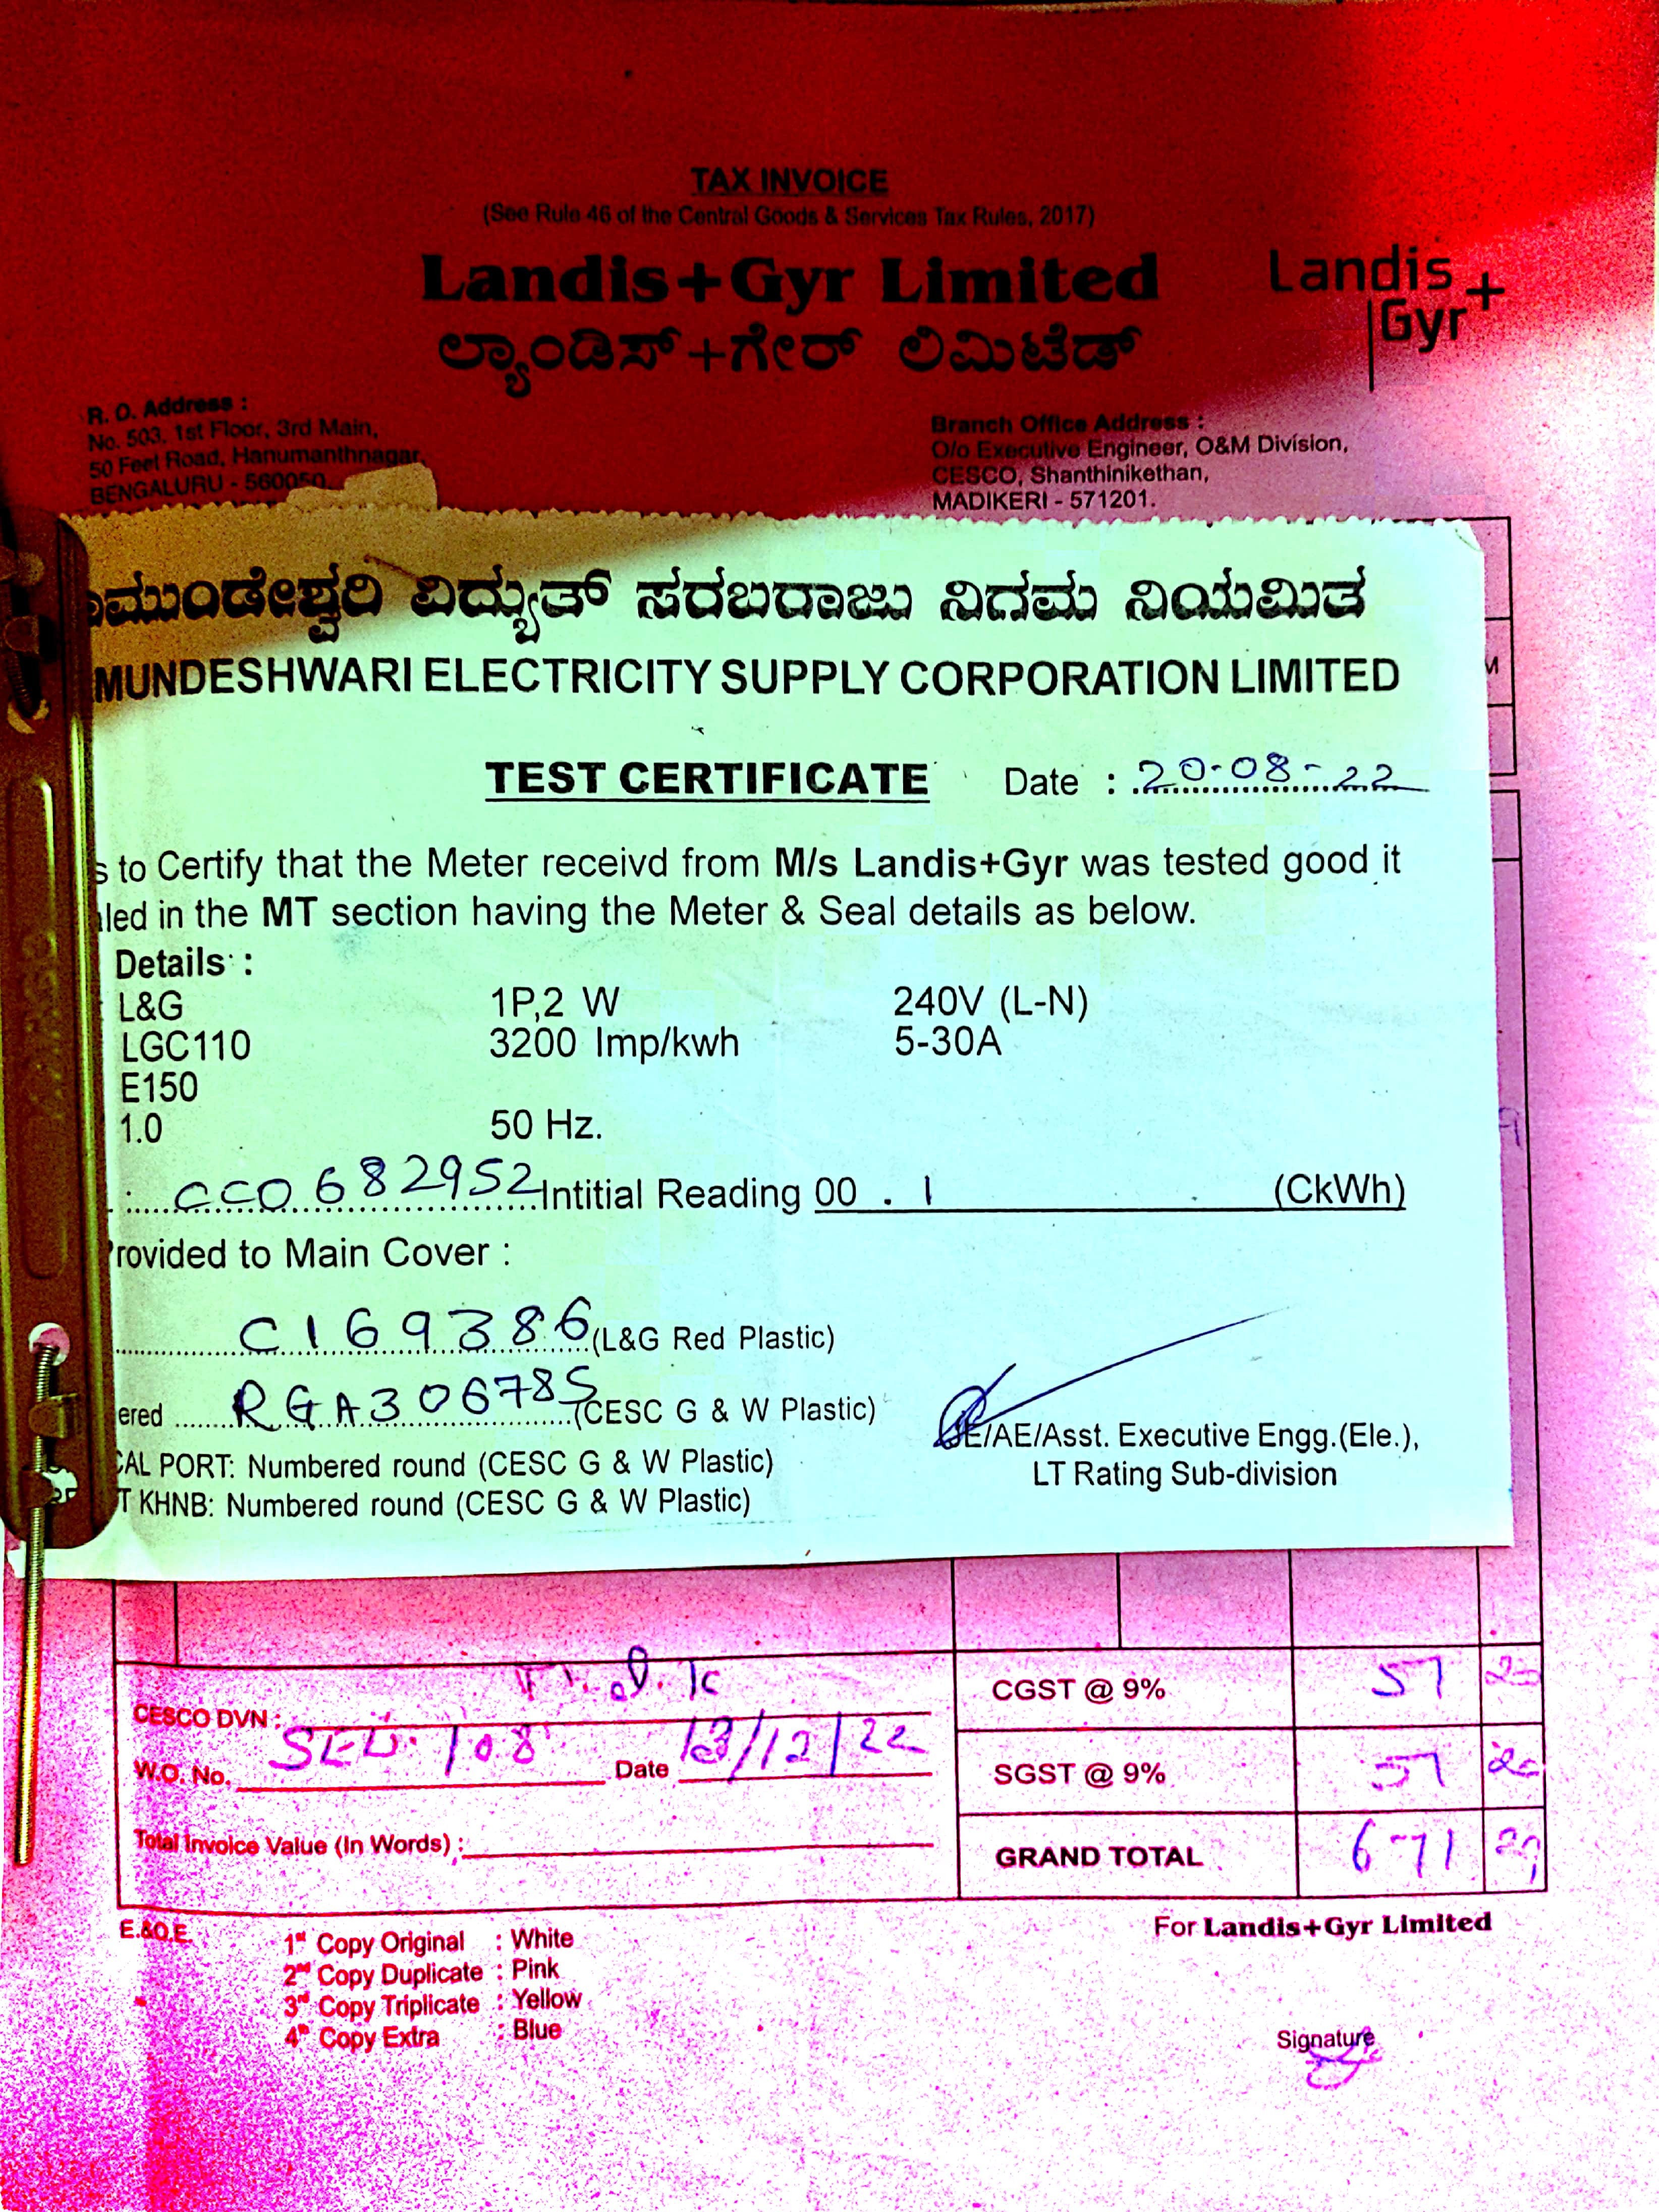 TAX INVOICE
(See Rule 46 of the Central Goods & Services Tax Rules, 2017)
Landis+Gyr Limited
Landis
Gyr+
ಲ್ಯಾಂಡಿಸ್+ಗೇರ್ ಲಿಮಿಟೆಡ್
R. O. Address :
No. 503, 1st Floor, 3rd Main,
50 Feet Road, Hanumanthnagar,
BENGALURU - 560050.
Branch Office Address :
O/o Executive Engineer, O&M Division,
CESCO, Shanthinikethan,
MADIKERI - 571201.
ಮುಂಡೇಶ್ವರಿ ವಿದ್ಯುತ್ ಸರಬರಾಜು ನಿಗಮ ನಿಯಮಿತ
MUNDESHWARI ELECTRICITY SUPPLY CORPORATION LIMITED
M
TEST CERTIFICATE Date : 20-08-22
s to Certify that the Meter receivd from M/s Landis+Gyr was tested good it
led in the MT section having the Meter & Seal details as below.
Details :
L&G 1P,2 W 240V (L-N)
LGC110 3200 Imp/kwh 5-30A
E150
1.0 50 Hz.
: CC0682952 Intitial Reading 00 . 1 (CkWh)
rovided to Main Cover :
C169386 (L&G Red Plastic)
ered RGA306785 (CESC G & W Plastic)
CAL PORT: Numbered round (CESC G & W Plastic)
T KHNB: Numbered round (CESC G & W Plastic)
JE/AE/Asst. Executive Engg.(Ele.),
LT Rating Sub-division
CESCO DVN :
W.O. No. 108 Date 13/12/22
Total Invoice Value (In Words) :
CGST @ 9% 57 20
SGST @ 9% 57 20
GRAND TOTAL 671
E.&O.E.
1st Copy Original : White
2nd Copy Duplicate : Pink
3rd Copy Triplicate : Yellow
4th Copy Extra : Blue
For Landis+Gyr Limited
Signature